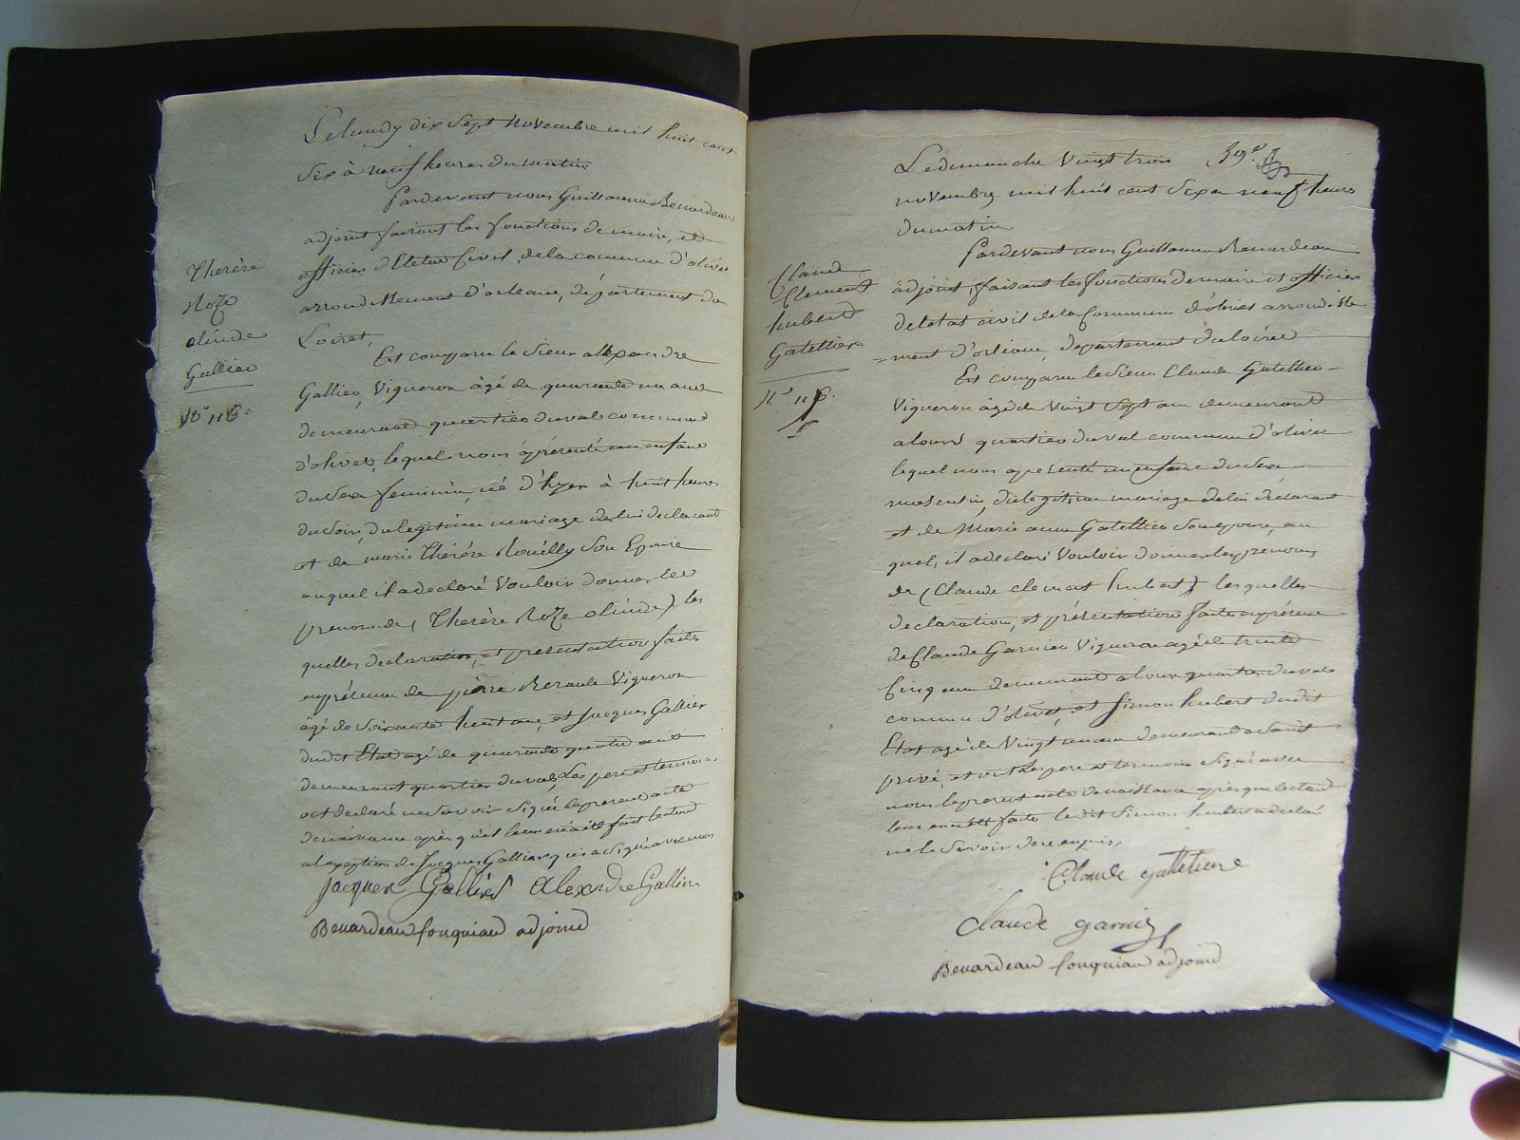 Le lundy dix Sept novembre mil huit cent
Six à neuf heures du matin
Pardevant nous Guillaume Benardeau
adjoint faisant les fonctions de maire, et
officier d'Etat Civil, de la commune d'olivet
arrondissement d'orleans, département du
Loiret,
Est comparu le Sieur allexandre
Gallier, Vigneron âgé de quarante un ans
demeurant quartier du val commune
d'olivet, lequel nous à présenté un enfant
du Sexe feminin, né d'hyer à huit heures
du soir, du legitime mariage de lui declarant
et de marie Thérèse Rouilly Son Epouse
auquel il a declaré Vouloir donner les
prenoms de (Therèse Roze olinde) les
quelles declaration, et presentation faites
en présence de pierre Beraule Vigneron
âgé de Soixante huit ans, et Jacques Gallier
dudit Etat agé de quarante quatre ans
demeurant quartier du val, Les pere et temoins
ont declaré ne Savoir Signé le present acte
de naissance après qu'il leur en a été fait lecture
al exception de Jacques Gallier qui a Signé avec nous
Jacques Gallier Alexandre Gallier
Benardeau fouqueau adjoind
Therèse
Roze
olinde
Gallier
No. 116.
Le dimanche Vingt trois
novembre mil huit cent Six a neuf heures
du matin
Pardevant nous Guillaume Benardeau
adjoint, faisant les fonctions de maire et officier
de letat civil de la Commune d'olivet arrondisse
=ment d'orleans, departement du loiret
Est comparu le Sieur Claude Gatellier
Vigneron agé de Vingt Sept ans demeurant
a quartier du val commune d'olivet
lequel nous a presenté un enfant du Sexe
masculin, du legitime mariage de lui déclarant
et de Marie anne Gatellier Son epouse, au
quel, il a declaré Vouloir donner les prenoms
de (Claude clement hubert) lesquelles
declaration, et présentation faites en présence
de Claude Garnier Vigneron agé de trente
Cinq ans demeurant quartier du val
commune d'olivet, et Simon hubert dudit
Etat agé de Vingt un ans demeurant a Saint
privé, et ont les pere et temoin Signé avec
nous le present acte de naissance après que lecture
leur en a été faite ledit Simon hubert a declaré
ne le Savoir de ce enquis,
Claude gattelliere
claude garnier
Benardeau fouqueau adjoind
Claude
Clement
hubert
Gatellier
No. 117.